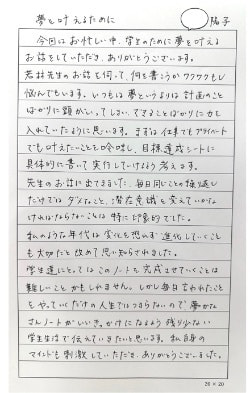 夢を叶えるために
陽子
今回はお忙しい中、学生のために夢を叶える
お話をしていただき、ありがとうございます。
若林先生のお話を伺って、何を書こうかワクワクもし
悩んでもいます。いつもは夢というよりは計画のこと
ばかりに頭がいってしまい、できることばかりに力を
入れていたように思います。まずは仕事でもプライベート
でも叶えたいことを吟味し、目標達成シートに
具体的に書いて実行していけるよう考えます。
先生のお話に出てきました、毎日同じことの繰返し
だけではダメなこと、潜在意識を変えていかな
ければならないことは特に印象的でした。
私のような年代は変化を恐れず進化していくこと
も大切だと改めて思い知らされました。
学生達にとってはこのノートを完成させていくことは
難しいことかもしれません。しかし毎日言われたこと
をやっていくだけの人生ではつまらないので夢がな
さんノートがいいきっかけになるよう残り少ない
学生生活で伝えていきたいと思います。私自身の
マインドも刺激していただき、ありがとうございました。
20×20